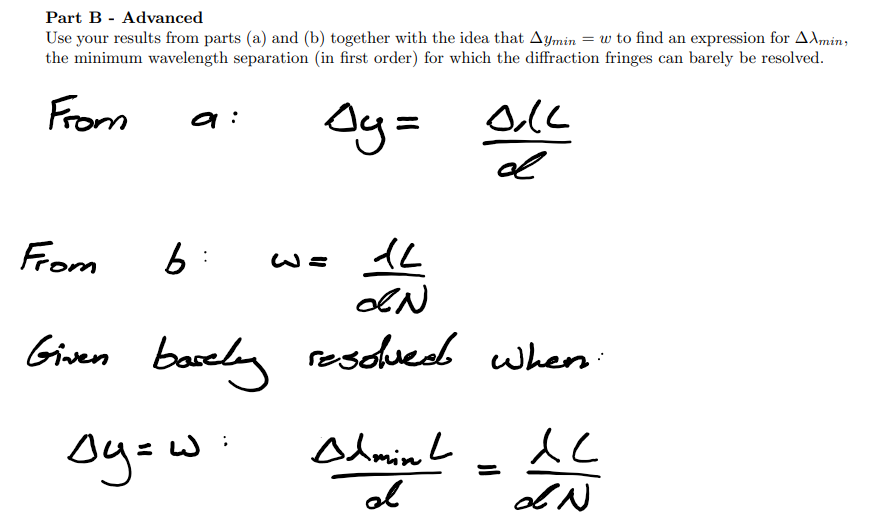 Part B - Advanced
Use your results from parts (a) and (b) together with the idea that Δy_min = w to find an expression for Δλ_min,
the minimum wavelength separation (in first order) for which the diffraction fringes can barely be resolved.
From a: Δy = ΔλL / d
From b: w = λL / dN
Given barely resolved when:
Δy = w: Δλ_min L / d = λL / dN